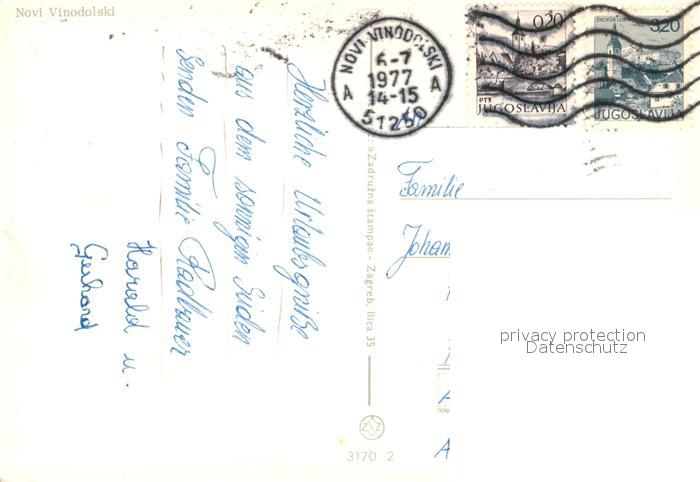 Novi Vinodolski
NOVI VINODOLSKI
6-7
1977
14-15
A A
51250
0.20
PTT
JUGOSLAVIJA
ŠKOFJA LOKA
3,20
JUGOSLAVIJA
Herzliche Urlaubsgrüße
aus dem sonnigen Süden
Senden Familie Radbauer
Harald u.
Gerhard
»Zadružna štampa« - Zagreb, Ilica 35
Familie
Johan
privacy protection
Datenschutz
A
3170-2